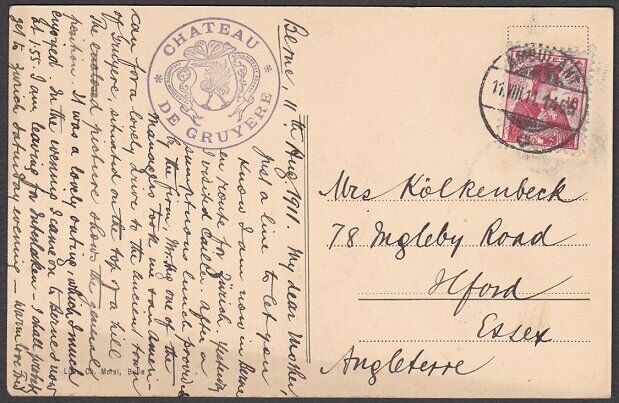 Berne, 11th Aug. 1911. My dear Mother,
Just a line to let you
know I am now in Berne
en route for Zürich. Yesterday
I visited Cailler. After a
sumptuous lunch provided
by the firm, one of the
Managers took me & an Ameri-
can for a lovely drive to the ancient town
of Gruyère, situated on the top of a hill
The picture shows the general
position. It was a lovely outing, which I much
enjoyed. In the evening I came on to Berne & now
at 1.55 I am leaving for Interlaken - I shall probably
get to Zürich Saturday evening - Warm love
CHATEAU
DE GRUYERE
AMBULANT
11.VIII.11
Mrs Kölkenbeck
78 Ingleby Road
Ilford
Essex
Angleterre
Ch. Morel, Bulle